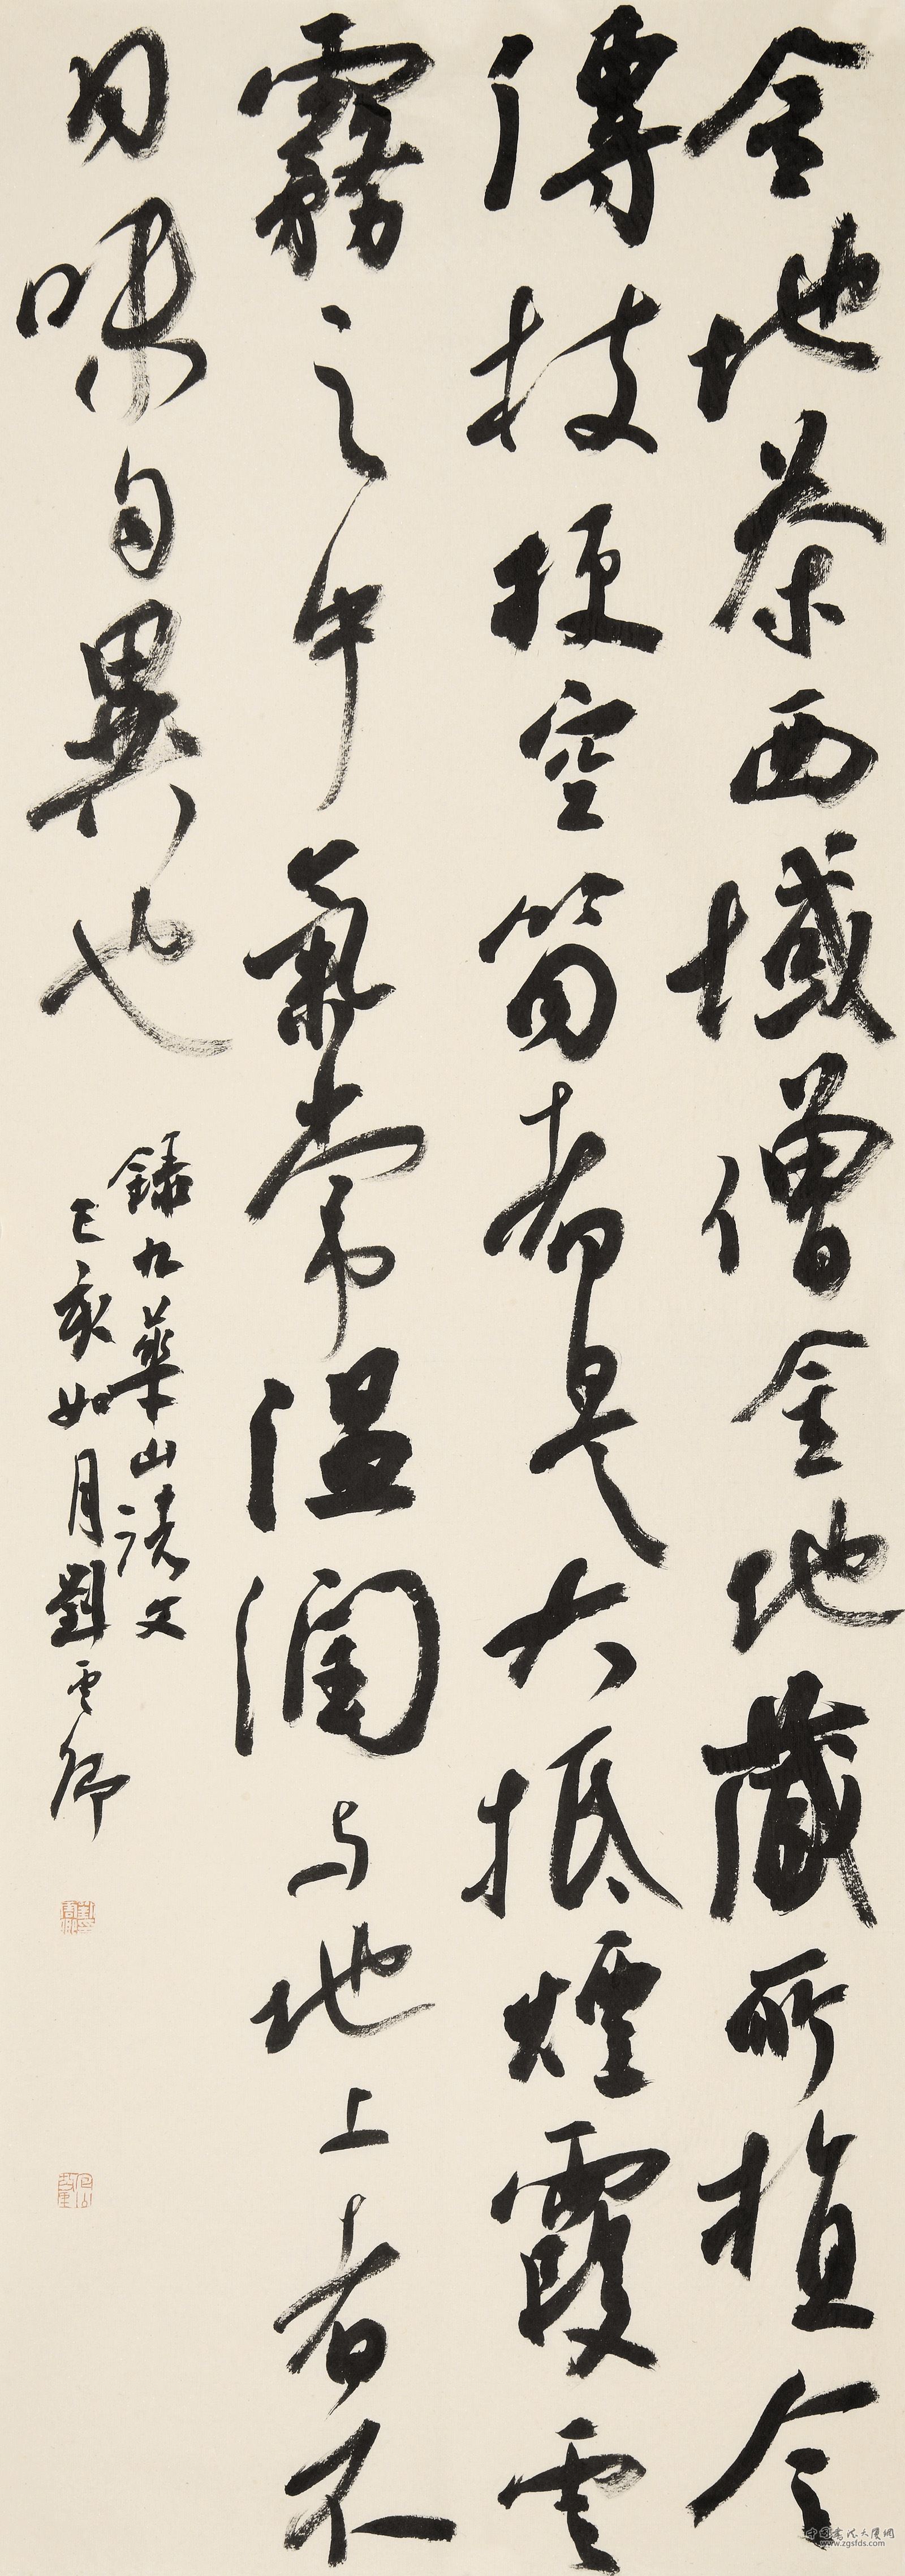 金地茶西域僧金地藏所植今
傳枝梗空筒者是大抵煙霞雲
霧之中氣常温潤与地上者不
同味自異也
錄九華山誌文
己亥如月劉雲卿
中國書法大廈網
www.zgsfds.com